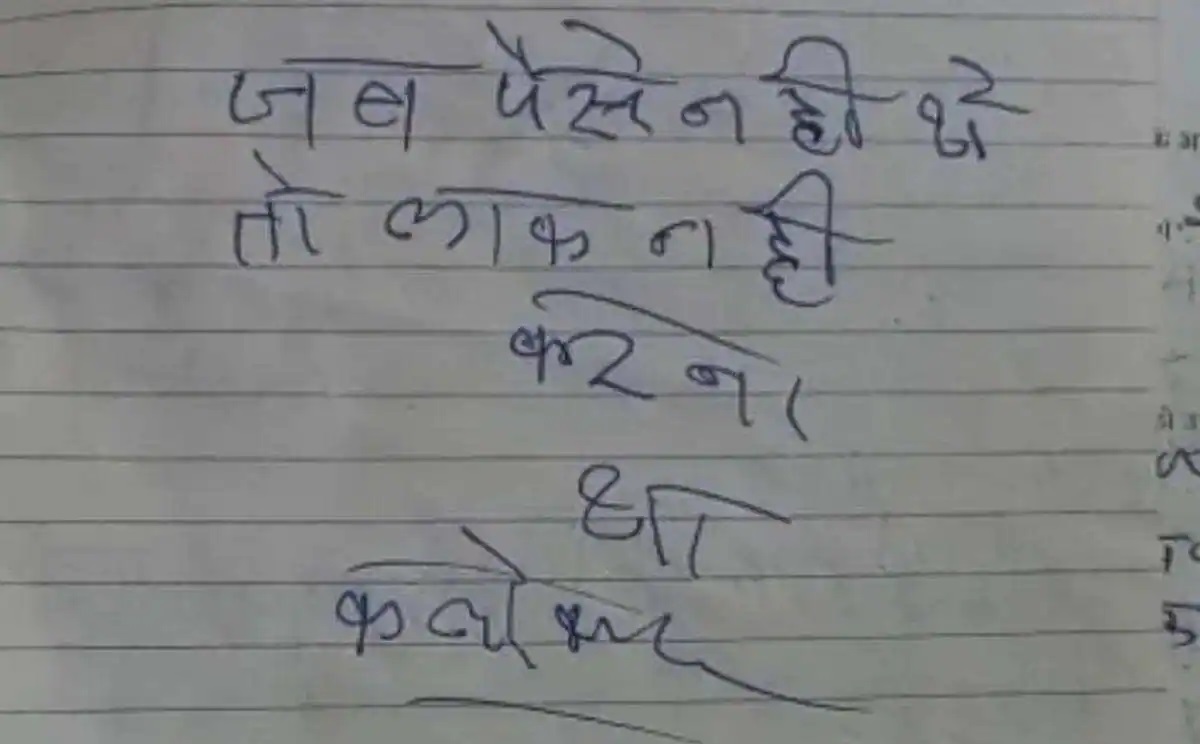 जब पैसे नही थे
तो लाक नही
करना
था
कलेकर